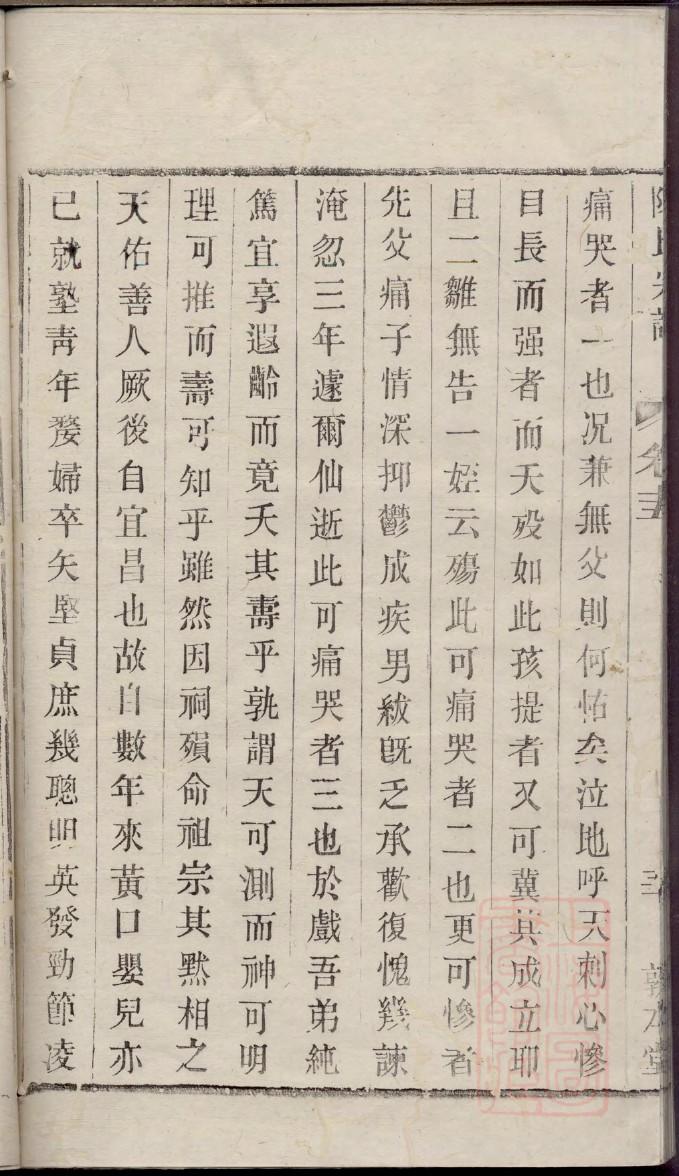 痛哭者一也况兼無父則何怙矣泣地呼天刺心慘
目長而强者而夭殁如此孩提者又可冀其成立耶
且二雛無告一姪云殤此可痛哭者二也更可慘者
先父痛子情深抑鬱成疾男紱旣乏承歡復愧幾諫
淹忽三年遽爾仙逝此可痛哭者三也於戲吾弟純
篤宜享遐齡而竟夭其壽乎孰謂天可測而神可明
理可推而壽可知乎雖然因祠殞命祖宗其默相之
天佑善人厥後自宜昌也故自數年來黃口嬰兒亦
已就塾靑年嫠婦卒矢堅貞庶幾聰明英發勁節凌